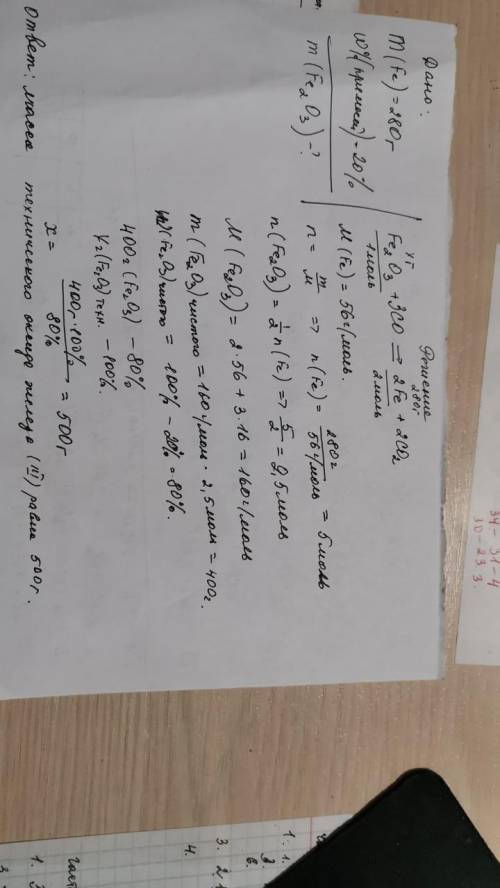 Дано:
m(Fe)=280г
w%(примесей)=20%
m(Fe2O3)-?
Решение
xг 280г
Fe2O3 + 3CO = 2Fe + 2CO2
1моль 2моль
M(Fe) = 56г/моль.
n = m/M => n(Fe) = 280г/56г/моль = 5моль
n(Fe2O3) = 1/2 n(Fe) => 5/2 = 2,5моль
M(Fe2O3) = 2·56 + 3·16 = 160г/моль
m(Fe2O3)чистого = 160г/моль · 2,5моль = 400г.
(Fe2O3)чистого = 100% - 20% = 80%.
400г (Fe2O3) - 80%
xг (Fe2O3)техн. - 100%.
x = 400г·100%/80% = 500г
Ответ: масса технического оксида железа (III) равна 500г.
34-31-4
30-23.3.
1. 1.
3. 2
4.
1.